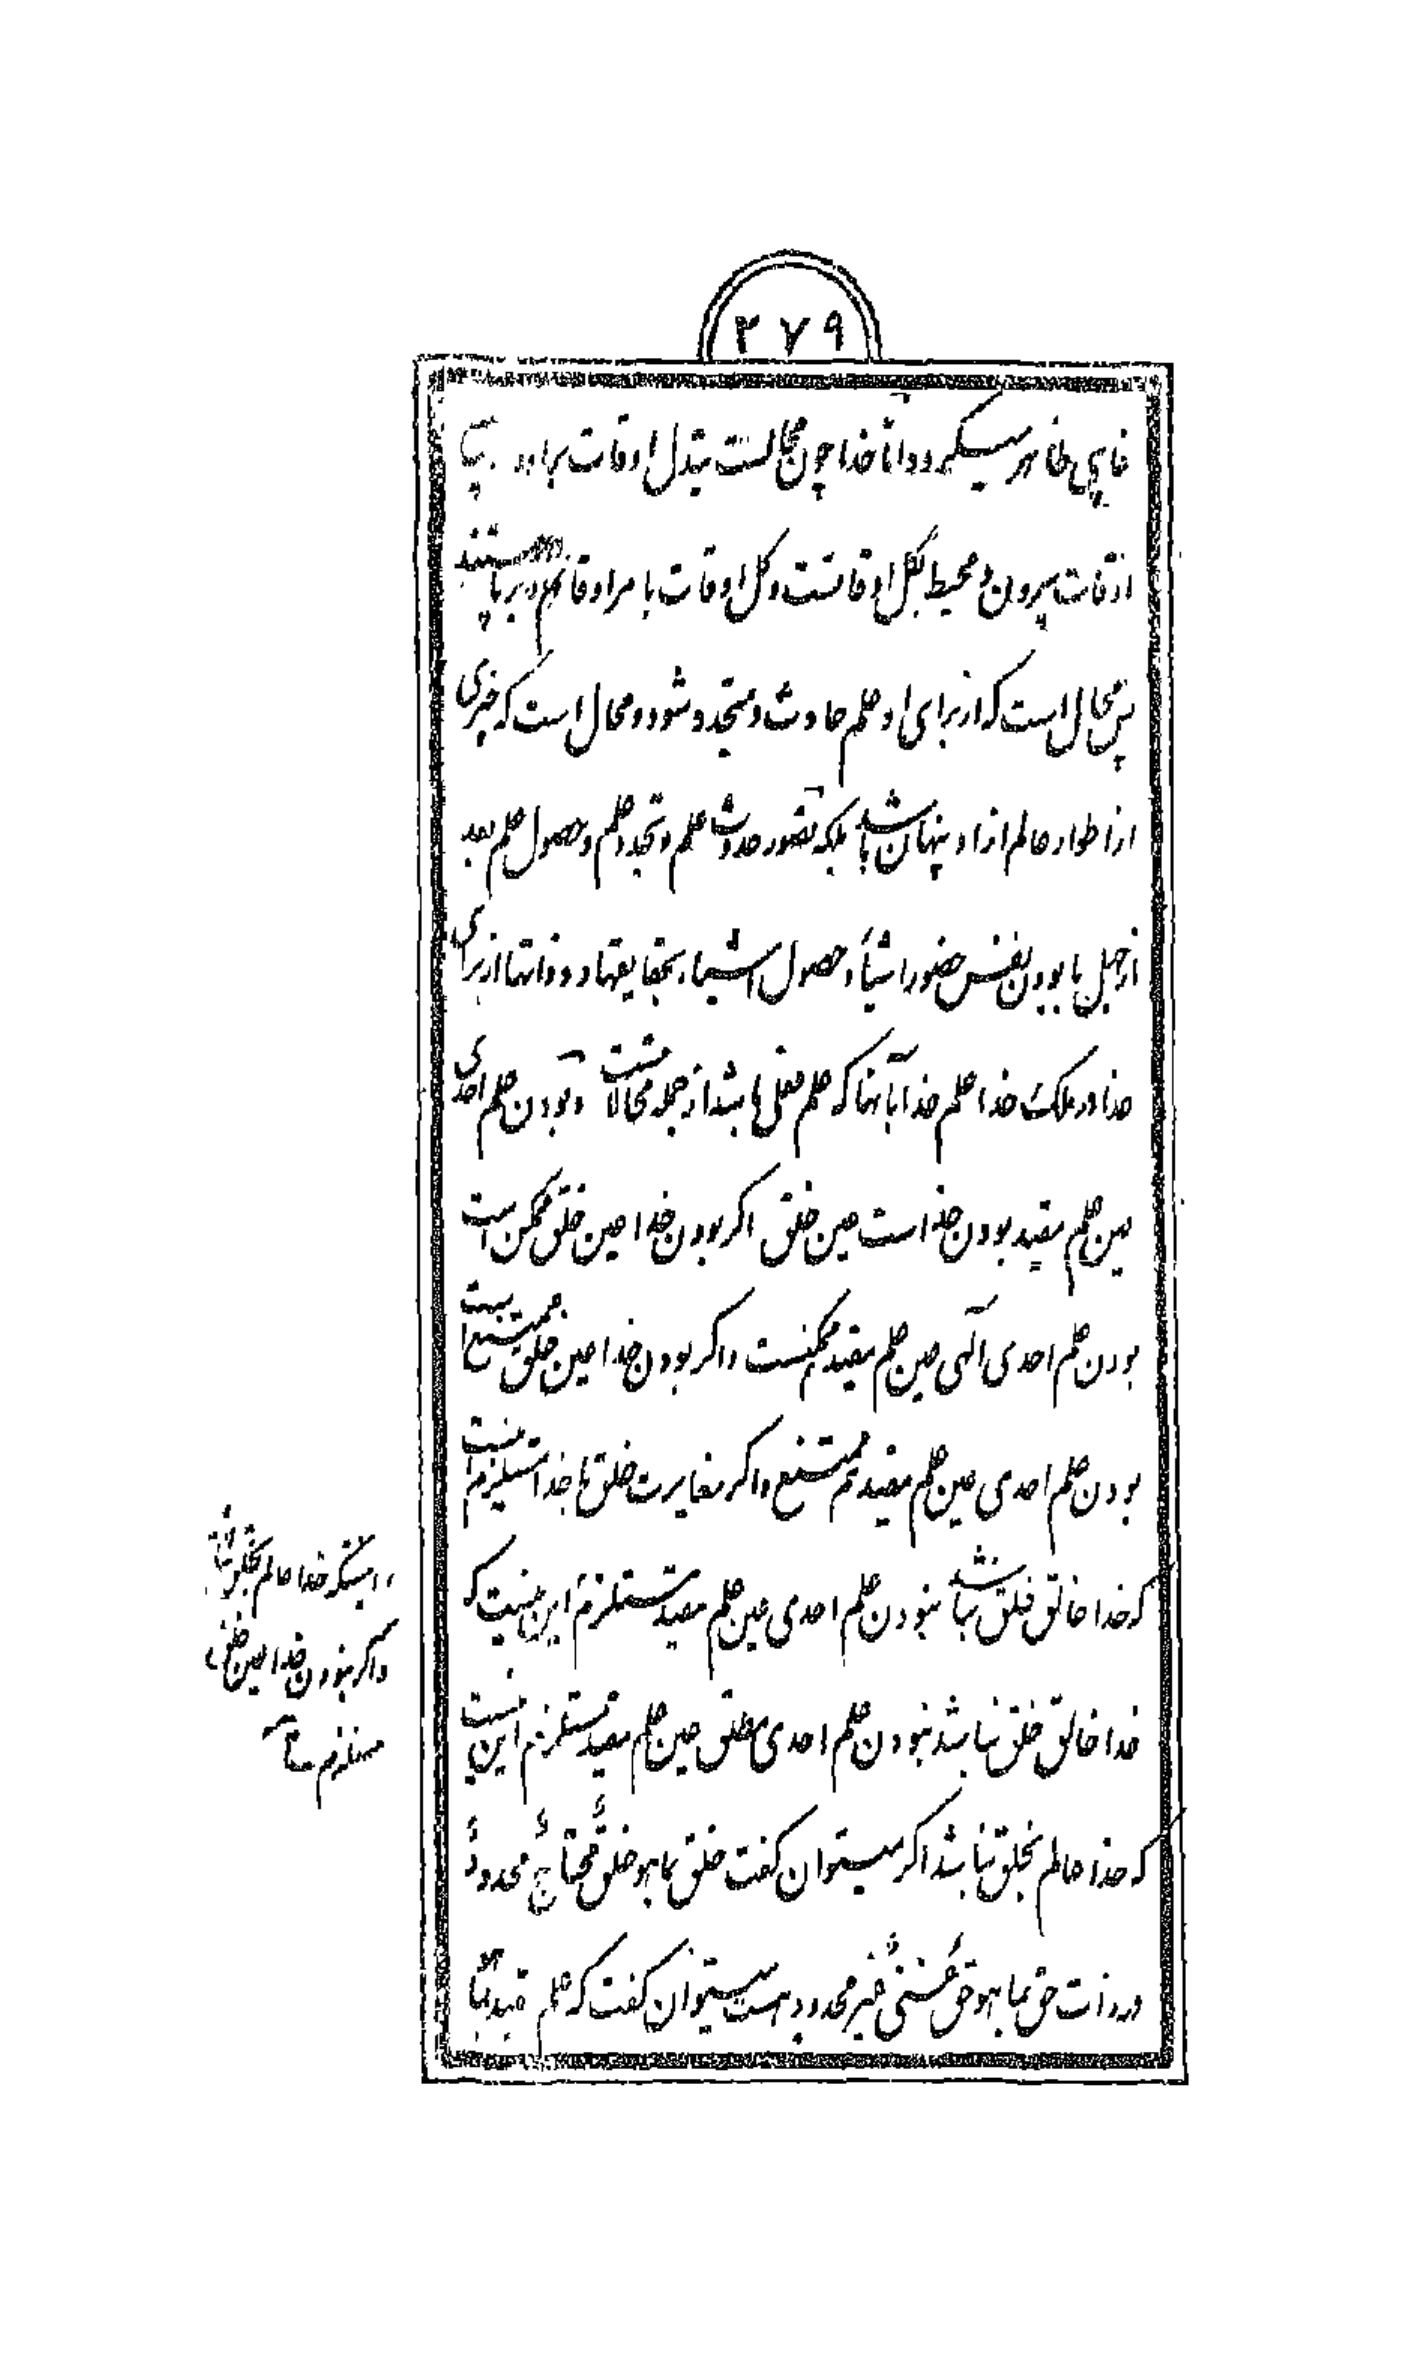 ۲۷۹
غایبی ظاهر میگردد و امّا خدا چون محالست تبدّل اوقات برا و
اوقات بیرون و محیط بکل اوقاتست و کل اوقات بامر او قائم و برپا هستند
پس محال است که از برای او علم حادث و متجدد شود و محال است که چیزی
از اطوار عالم از او پنهان باشد بلکه تصور حدوث علم و تجدد علم و حصول علم بعد
از جهل با بودن نفس حضور اشیاء و حصول اشیاء بحقایقها و ذواتها از برای
خدا در ملک خدا علم خدا بآنها که علم فعلی باشد از جمله محالاتست و بودن علم احدی
عین علم مقید بودن خداست عین خلق اگر بودن خدا عین خلق ممکن است
بودن علم احدی الٓهی عین علم مقید ممکنست و اگر بودن خدا عین خلق ممتنع است
بودن علم احدی عین علم مقید هم ممتنع و اگر مغایرت خلق با خدا مستلزم این نیست
که خدا خالق خلق نباشد نبودن علم احدی عین علم مقید مستلزم این نیست که
خدا خالق خلق نباشد نبودن علم احدی مطلق عین علم مقید مستلزم این نیست
که خدا عالم بخلق نباشد اگر میتوان گفت خلق بما هو خلقٌ محتاجٌ محدودٌ
در ذات حق بما هو حق غنیٌ غیر محدود هست میتوان گفت که علم مقید بما
اینکه خدا عالم بخلق نباشد
و اگر نبودن خدا عین خلق
مستلزم